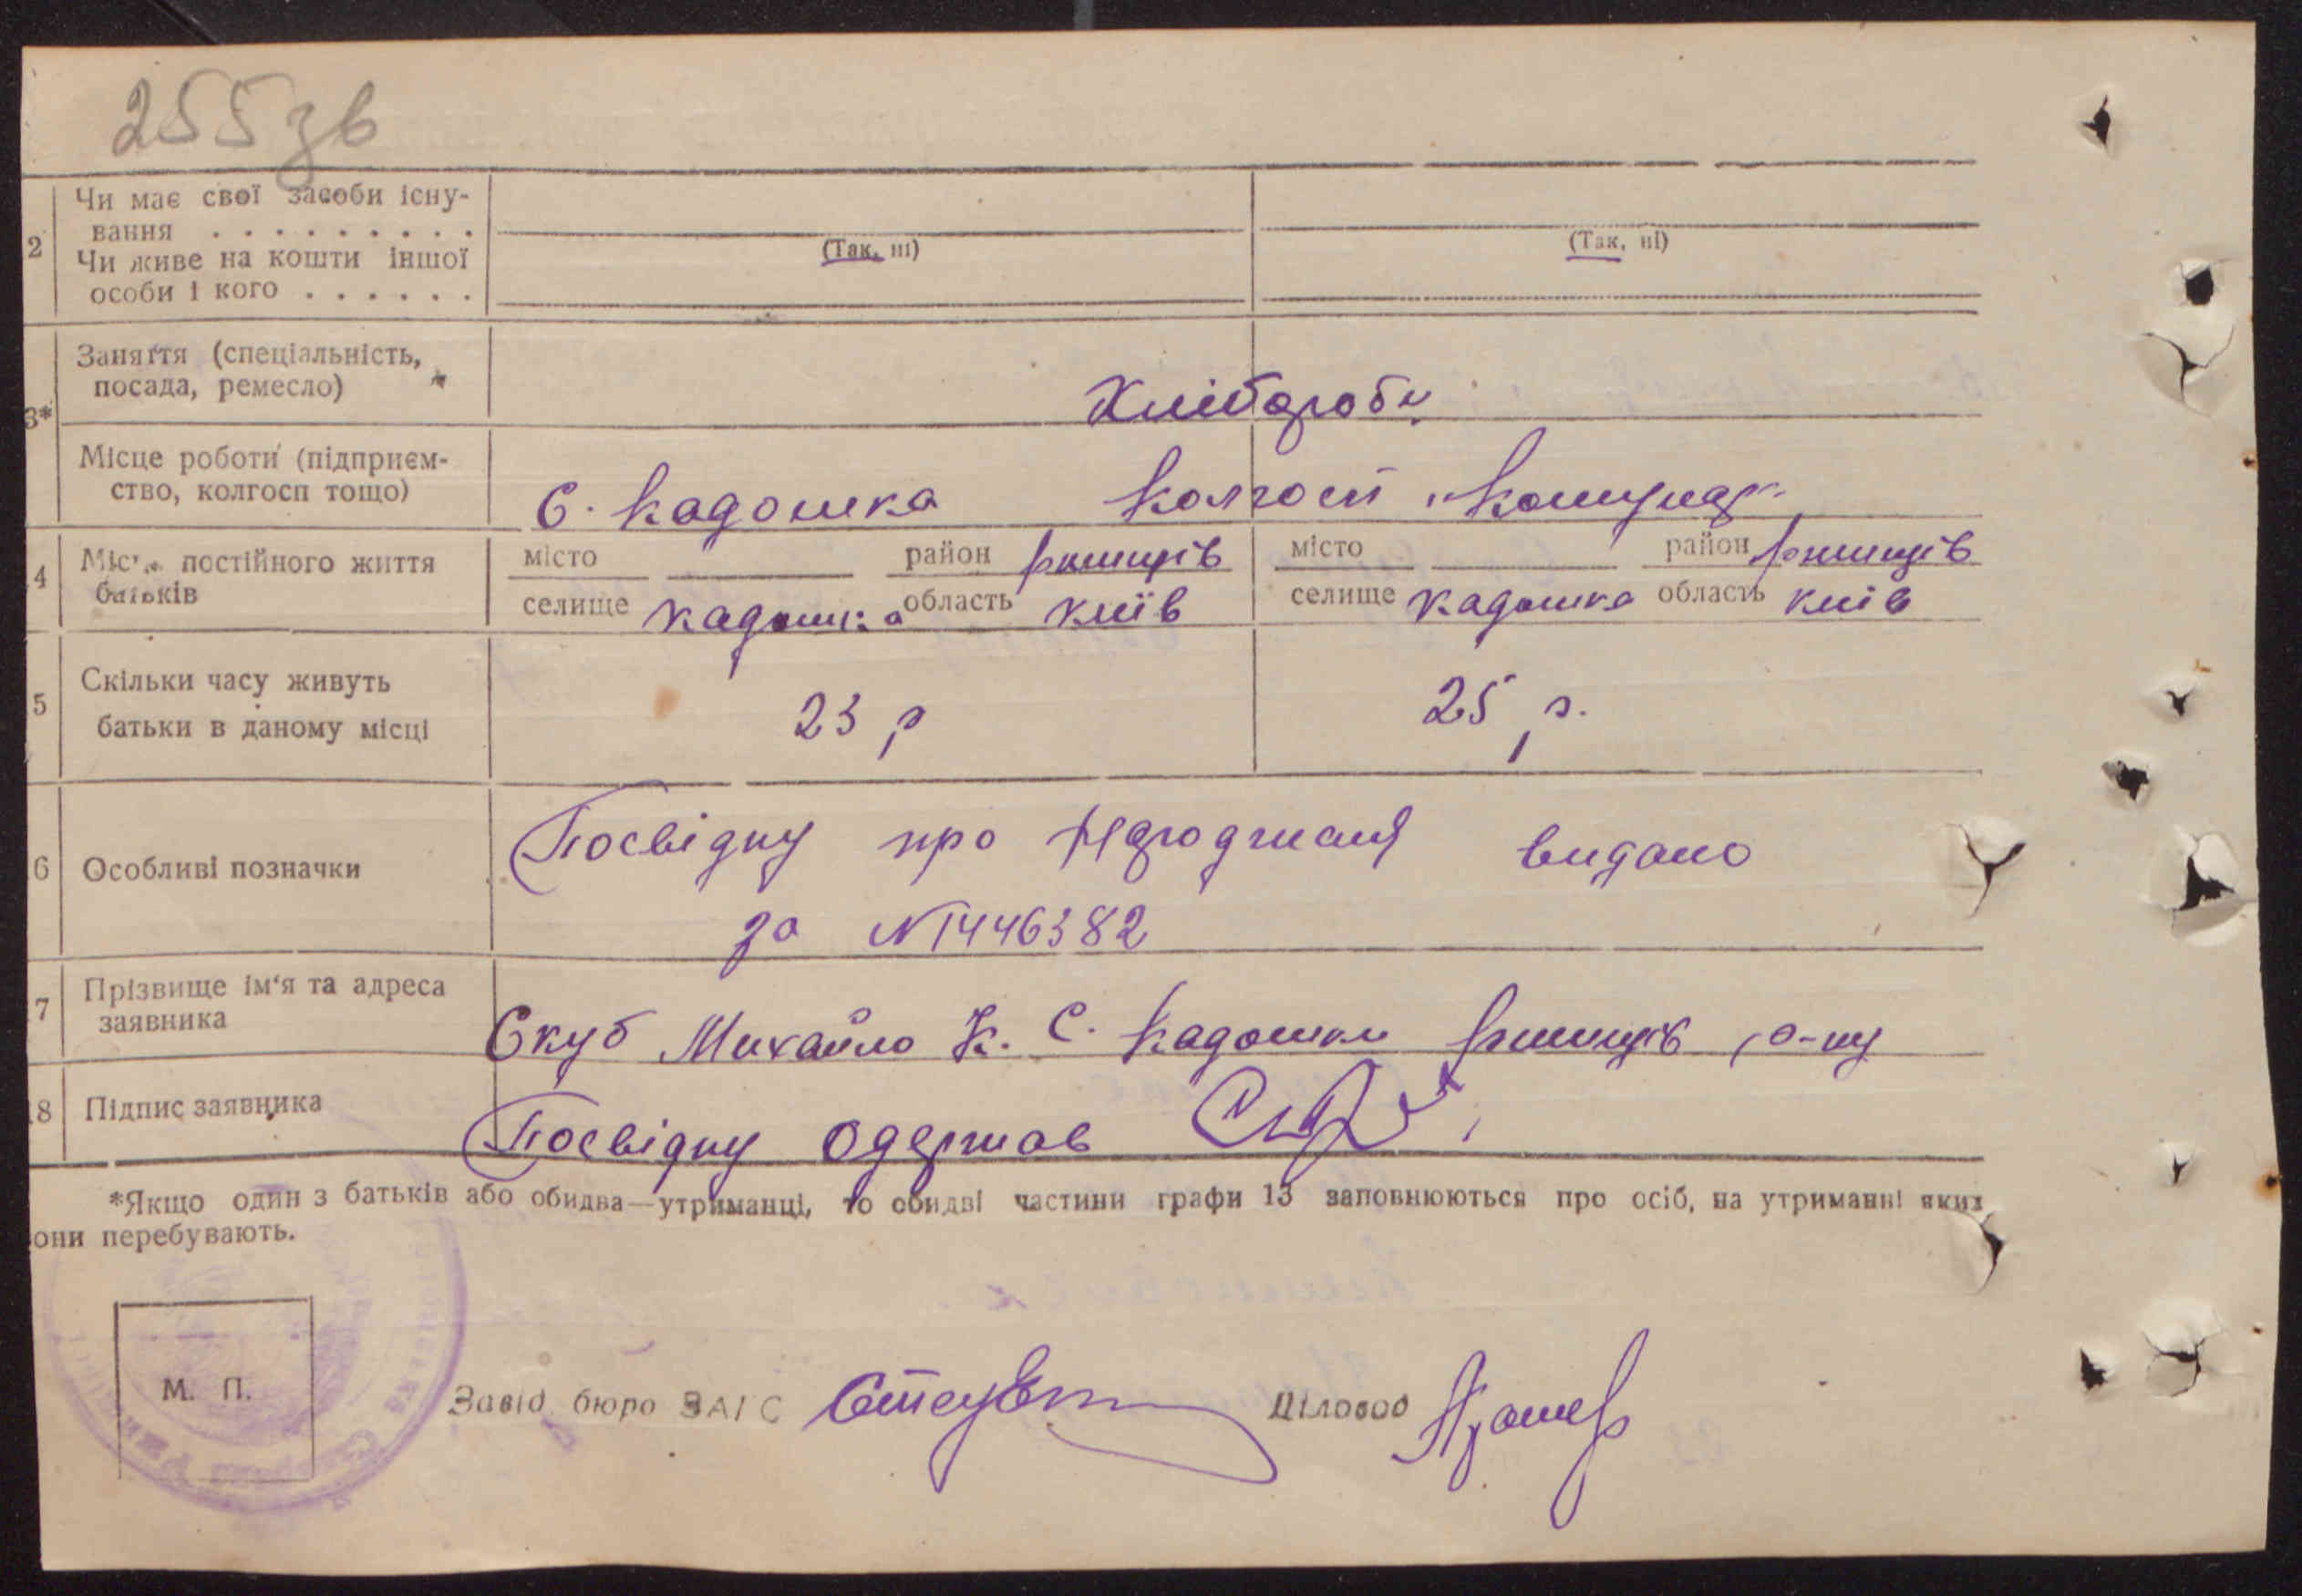 255зв
2 Чи має свої засоби існу-
вання . . . . . . . . .
Чи живе на кошти іншої
особи і кого . . . . . .
(Так, ні) (Так, ні)
3* Заняття (спеціальність,
посада, ремесло)
Хлібороби
Місце роботи (підприєм-
ство, колгосп тощо)
С. Кадошка Колгосп „Комунар"
4 Місце постійного життя
батьків
місто район Ржищів місто район Ржищів
селище Кадошка область Київ селище Кадошка область Київ
5 Скільки часу живуть
батьки в даному місці
23 р 25 р.
6 Особливі позначки
Посвідку про народження видано
за N1446382
7 Прізвище ім'я та адреса
заявника
Скуб Михайло К. С. Кадошки Ржищів р-ну
8 Підпис заявника
Посвідку одержав
*Якщо один з батьків або обидва—утриманці, то обидві частини графи 13 заповнюються про осіб, на утриманні яких
они перебувають.
М. П.
Завід. бюро ЗАГС Діловод